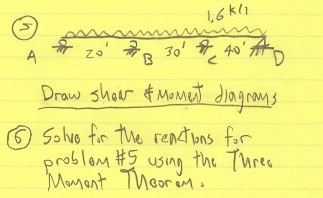 ⑤ 1,6 k/1
A 20' B 30' C 40' D
Draw shear & moment diagrams
⑥ Solve for the reactions for
problem #5 using the Three
Moment Theorem.